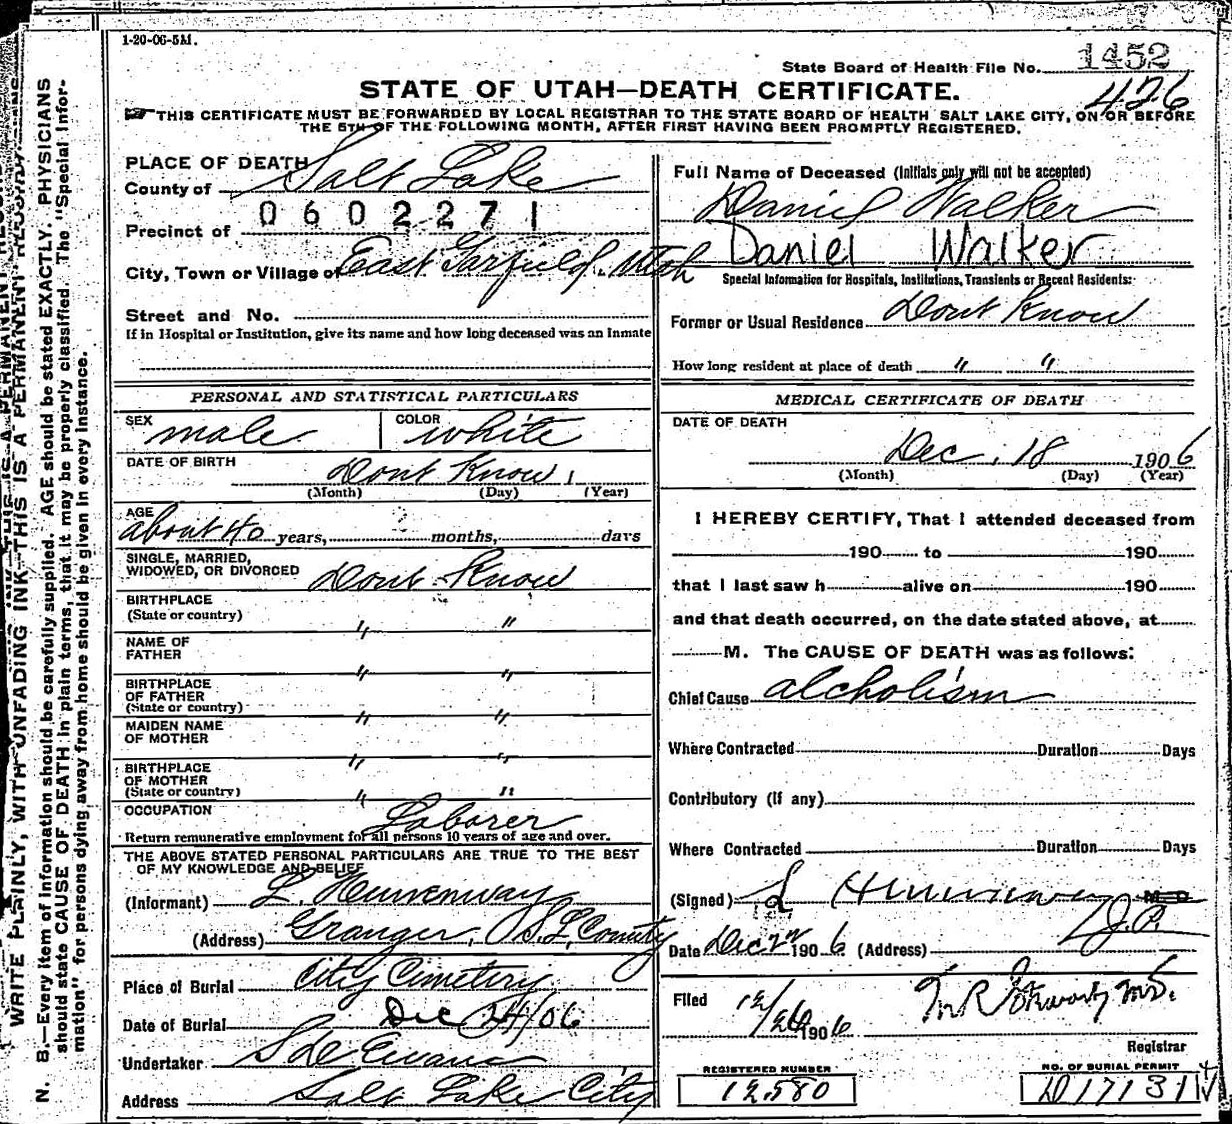 1-20-06-5M.
State Board of Health File No. 1452
426
STATE OF UTAH—DEATH CERTIFICATE.
THIS CERTIFICATE MUST BE FORWARDED BY LOCAL REGISTRAR TO THE STATE BOARD OF HEALTH SALT LAKE CITY, ON OR BEFORE
THE 5TH OF THE FOLLOWING MONTH, AFTER FIRST HAVING BEEN PROMPTLY REGISTERED.
PLACE OF DEATH
County of Salt Lake
0602271
Precinct of
City, Town or Village of East Garfield, Utah
Street and No.
If in Hospital or Institution, give its name and how long deceased was an Inmate
Full Name of Deceased (Initials only will not be accepted)
Daniel Walker
Daniel Walker
Special Information for Hospitals, Institutions, Transients or Recent Residents:
Former or Usual Residence Dont Know
How long resident at place of death " "
PERSONAL AND STATISTICAL PARTICULARS
SEX male COLOR white
DATE OF BIRTH Dont Know
(Month) (Day) (Year)
AGE
about 40 years, months, days
SINGLE, MARRIED,
WIDOWED, OR DIVORCED Dont Know
BIRTHPLACE
(State or country) " "
NAME OF
FATHER " "
BIRTHPLACE
OF FATHER
(State or country) " "
MAIDEN NAME
OF MOTHER " "
BIRTHPLACE
OF MOTHER
(State or country) " "
OCCUPATION Laborer
Return remunerative employment for all persons 10 years of age and over.
THE ABOVE STATED PERSONAL PARTICULARS ARE TRUE TO THE BEST
OF MY KNOWLEDGE AND BELIEF
(Informant) L. Hemenway
(Address) Granger, S.L. County
Place of Burial City Cemetery
Date of Burial Dec 24/06
Undertaker S D Evans
Address Salt Lake City
MEDICAL CERTIFICATE OF DEATH
DATE OF DEATH
Dec. 18 1906
(Month) (Day) (Year)
I HEREBY CERTIFY, That I attended deceased from
190 to 190
that I last saw h alive on 190
and that death occurred, on the date stated above, at
M. The CAUSE OF DEATH was as follows:
Chief Cause alcholism
Where Contracted Duration Days
Contributory (If any)
Where Contracted Duration Days
(Signed) L Hemenway M D
J.P.
Date Dec 22 1906 (Address)
Filed 12/26 1906
M.D.
Registrar
REGISTERED NUMBER
12580
NO. OF BURIAL PERMIT
D17131
WRITE PLAINLY, WITH UNFADING INK—THIS IS A PERMANENT
N. B.—Every item of information should be carefully supplied. AGE should be stated EXACTLY. PHYSICIANS
should state CAUSE OF DEATH in plain terms, that it may be properly classified. The "Special Infor-
mation" for persons dying away from home should be given in every instance.